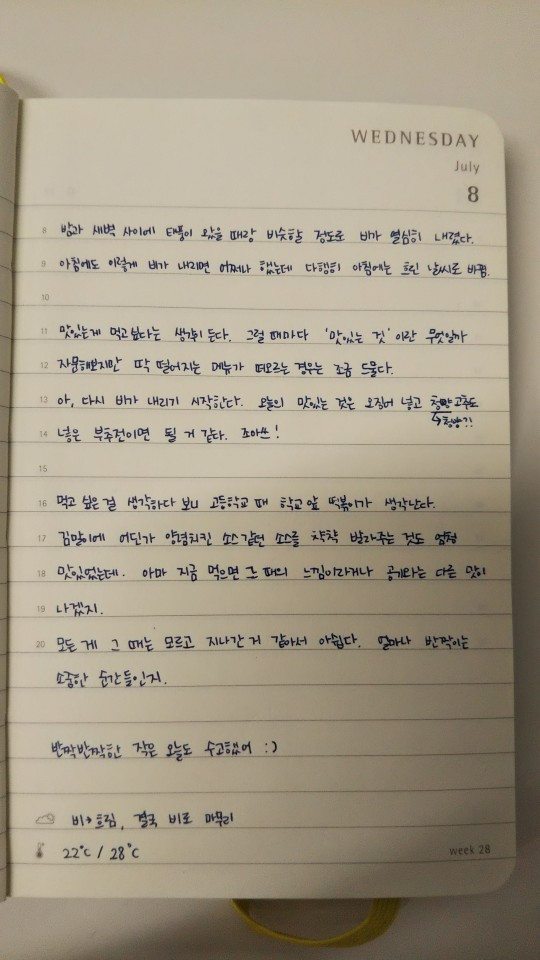 WEDNESDAY
July
8
8 밤과 새벽 사이에 태풍이 왔을 때랑 비슷할 정도로 비가 열심히 내렸다.
9 아침에도 이렇게 비가 내리면 어쩌나 했는데 다행히 아침에는 흐린 날씨로 바뀜.
10
11 맛있는게 먹고싶다는 생각이 든다. 그럴 때마다 '맛있는 것' 이란 무엇일까
12 자문해보지만 딱 떨어지는 메뉴가 떠오르는 경우는 조금 드물다.
13 아, 다시 비가 내리기 시작한다. 오늘의 맛있는 것은 오징어 넣고 청량고추도
↳청양?!
14 넣은 부추전이면 될 거 같다. 조아쓰!
15
16 먹고 싶은 걸 생각하다 보니 고등학교 때 학교 앞 떡볶이가 생각난다.
17 김말이에 어딘가 양념치킨 소스같던 소스를 착착 발라주는 것도 엄청
18 맛있었는데. 아마 지금 먹으면 그 때의 느낌이라거나 공기와는 다른 맛이
19 나겠지.
20 모든 게 그 때는 모르고 지나간 거 같아서 아쉽다. 얼마나 반짝이는
소중한 순간들인지.
반짝반짝한 작은 오늘도 수고했어 :)
비→흐림, 결국 비로 마무리
22°C / 28°C
week 28